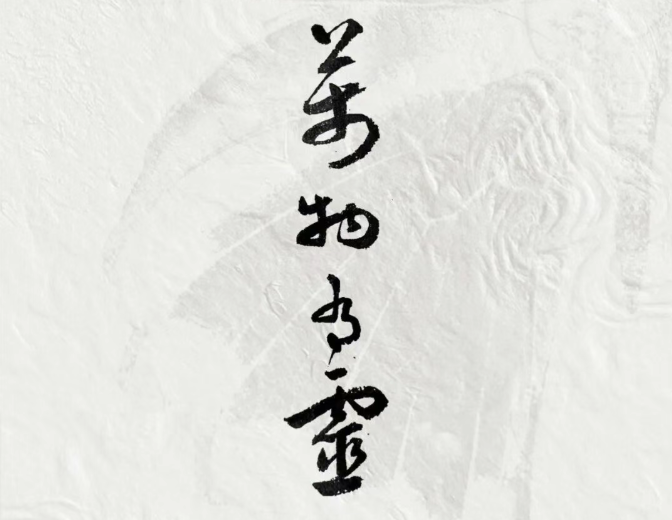 萬物有靈